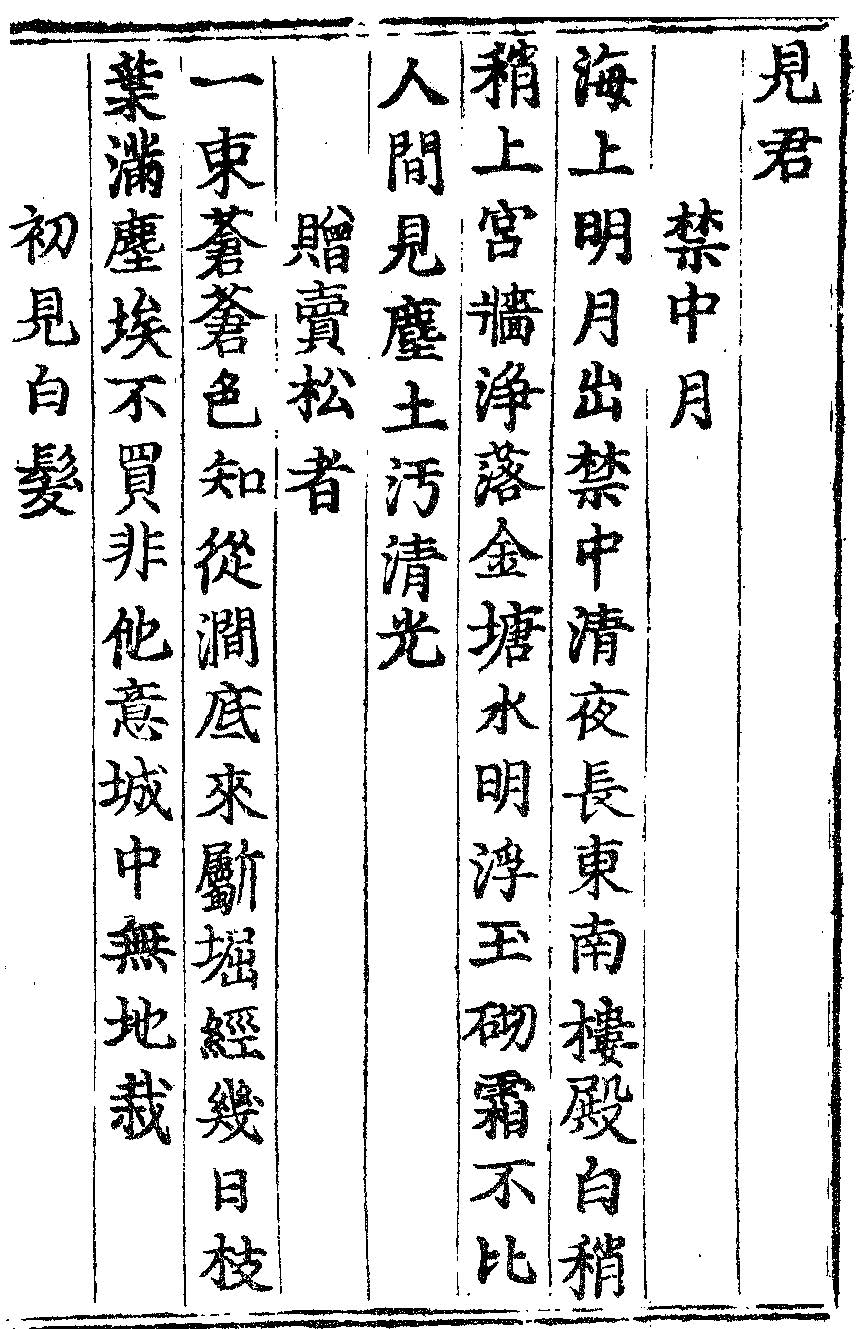 見君
禁中月
海上明月出禁中清夜長東南樓殿白稍
稍上宮牆浄落金塘水明浮玉砌霜不比
人間見塵土汚清光
贈賣松者
一束蒼蒼色知從澗底來斸堀經幾日枝
葉滿塵埃不買非他意城中無地栽
初見白髮